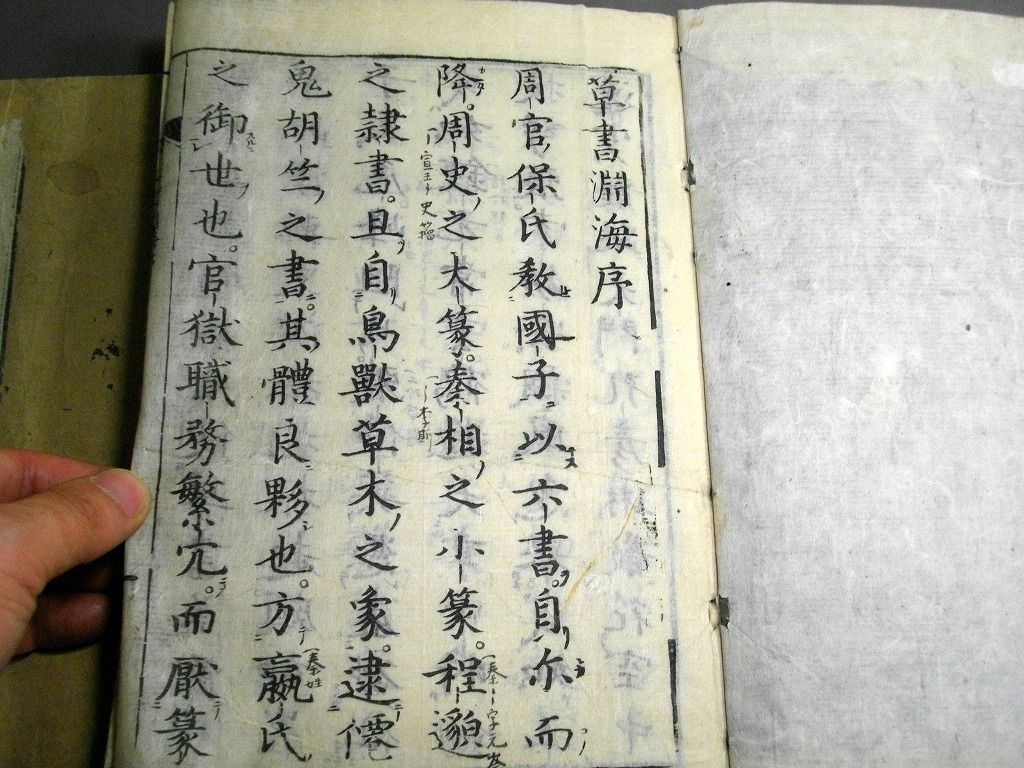 草書淵海序
周官保氏教國子以六書自尒而
降周史之大篆秦相之小篆程邈
之隷書且自鳥獸草木之象逮僊
鬼胡竺之書其體良夥也方嬴氏
之御世也官獄職務繁冗而厭篆
宣王史籀
李斯
秦姓